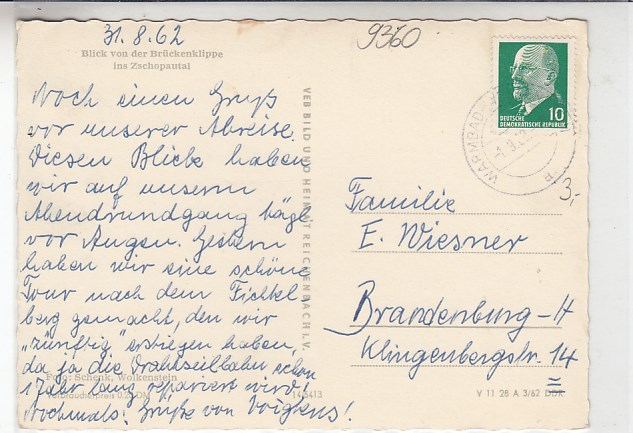 31.8.62
Blick von der Brückenklippe
ins Zschopautal
Noch einen Gruß
vor unserer Abreise.
Diesen Blick haben
wir auf unserm
Abendrundgang tägl.
vor Augen. Gestern
haben wir eine schöne
Tour nach dem Fichtel
berg gemacht, den wir
"zünftig" erstiegen haben,
da ja die Drahtseilbahn schon
1 Jahr lang repariert wird!
Nochmals Grüße von Voigtens!
Foto: Schenk, Wolkenstein
Verbraucherpreis 0.20 DM
14/5413
VEB BILD UND HEIMAT REICHENBACH I. V.
9360
DEUTSCHE
DEMOKRATISCHE REPUBLIK
10
WARMBAD
3,-
Familie
E. Wiesner
Brandenburg-H
Klingenbergstr. 14
V 11 28 A 3/62 DDR